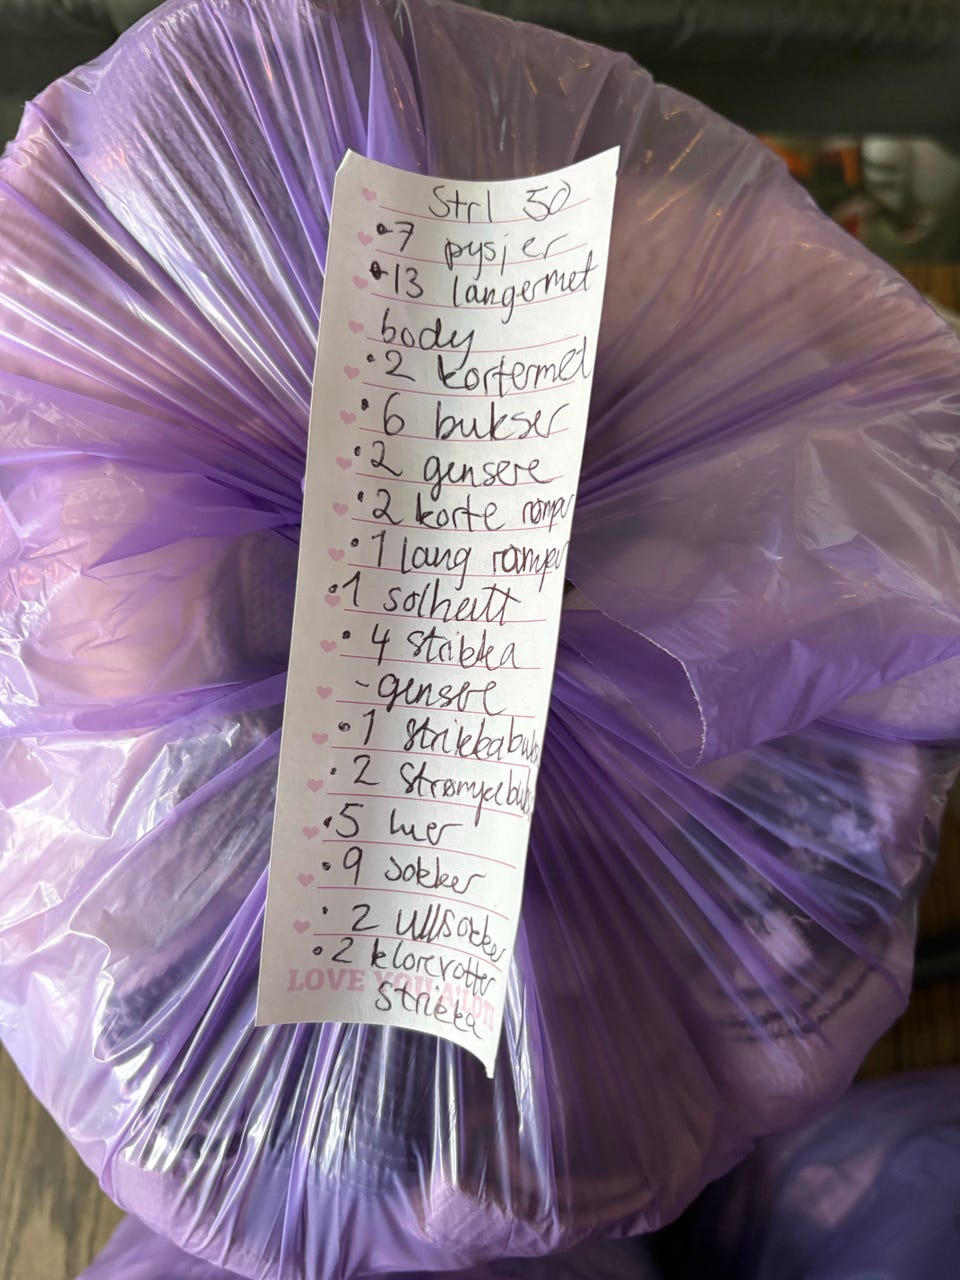 Strl 50
•7 pysjer
•13 langermet
body
•2 kortermet
•6 bukser
•2 gensere
•2 korte romper
•1 lang romper
•1 solhatt
•4 strikka
-gensere
•1 strikkabuks
•2 strømpebuks
•5 luer
•9 sokker
•2 ullsokker
•2 klorevotter
LOVE YOU A LOT!
strikka